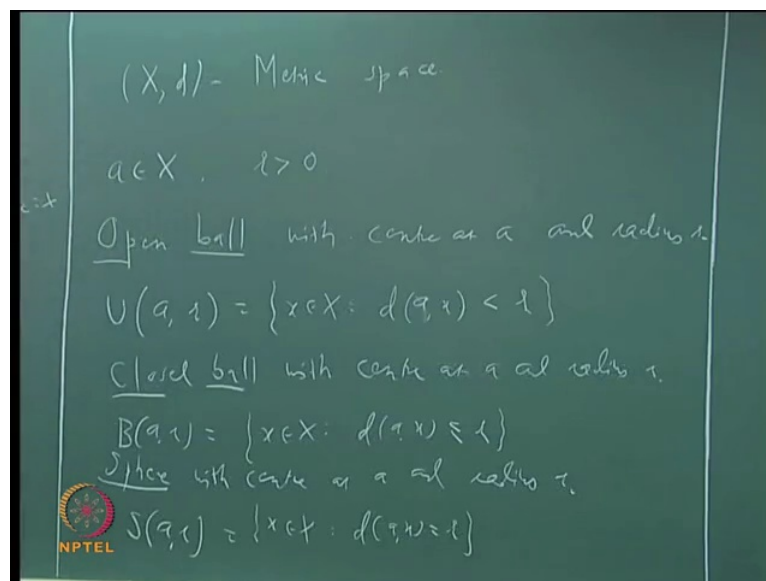 (X, d) - Metric space.
a ∈ X, r > 0
Open ball with centre as a and radius r.
U(a, r) = {x ∈ X : d(a, x) < r}
Closed ball with centre as a and radius r.
B(a, r) = {x ∈ X : d(a, x) ≤ r}
Sphere with centre as a and radius r.
S(a, r) = {x ∈ X : d(a, x) = r}
NPTEL